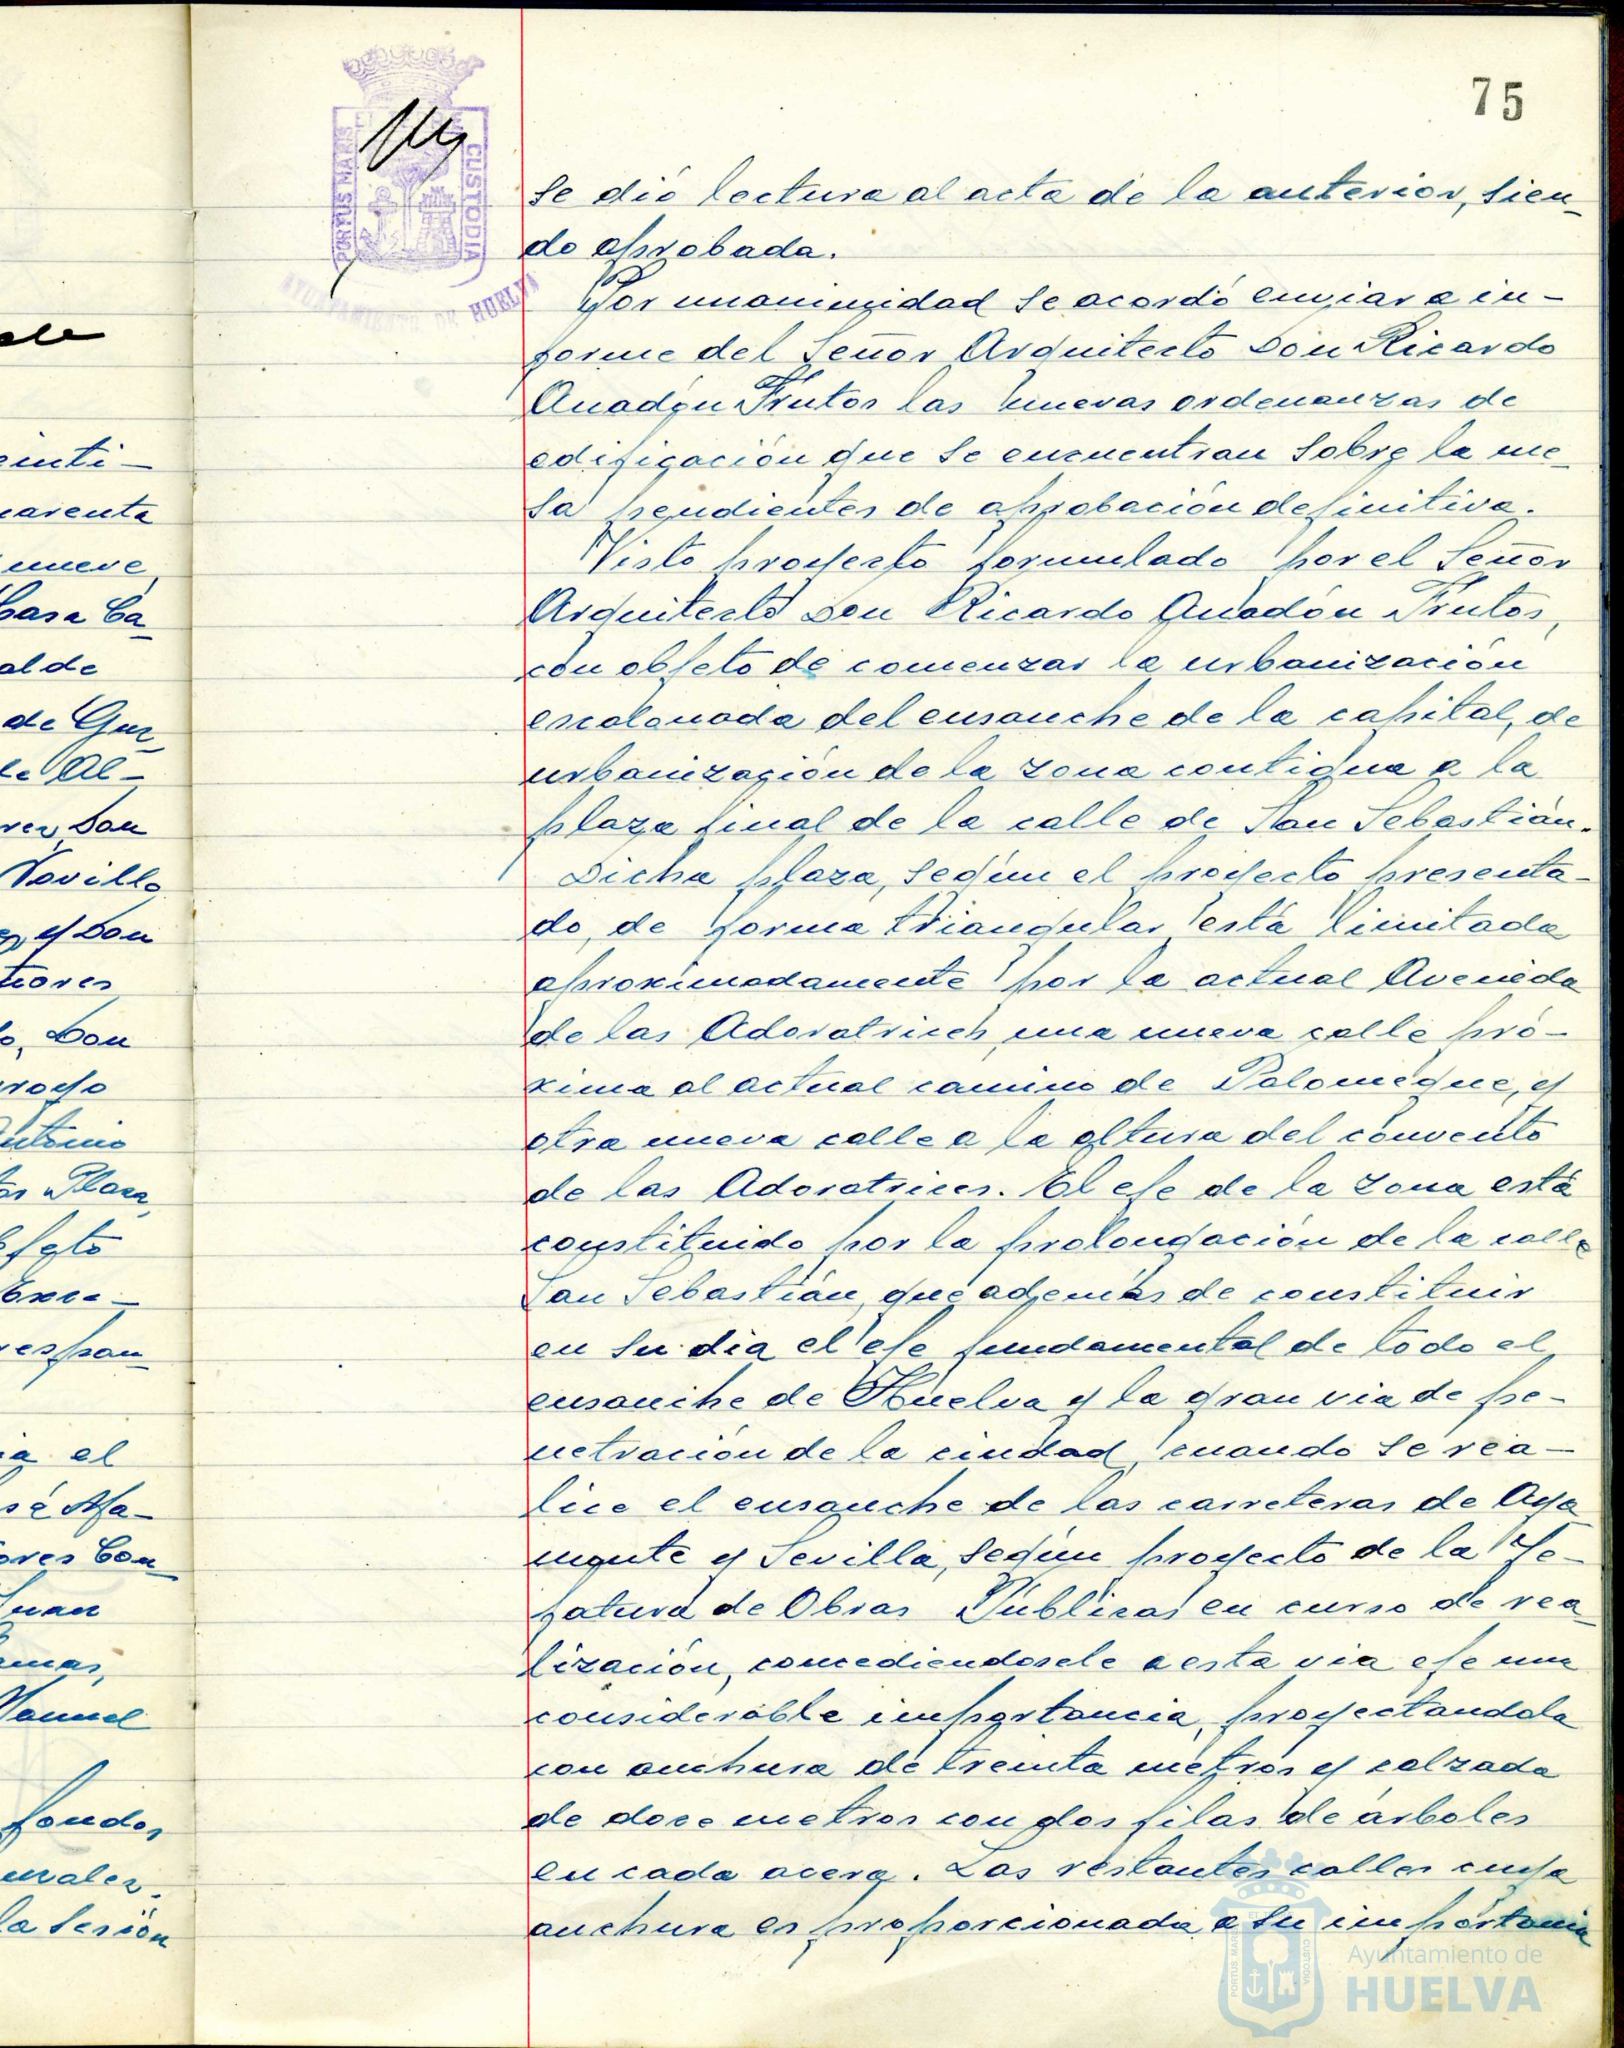 75
PORTUS MARIS
CUSTODIA
AYUNTAMIENTO DE HUELVA
se dió lectura al acta de la anterior, sien-
do aprobada.
Por unanimidad se acordó enviar a in-
forme del Señor Arquitecto Don Ricardo
Anadón Frutos las nuevas ordenanzas de
edificación que se encuentran sobre la me-
sa pendientes de aprobación definitiva.
Visto proyecto formulado por el Señor
Arquitecto Don Ricardo Anadón Frutos,
con objeto de comenzar la urbanización
escalonada del ensanche de la capital, de
urbanización de la zona contigua a la
plaza final de la calle de San Sebastián.
Dicha plaza, según el proyecto presenta-
do, de forma triangular está limitada
aproximadamente por la actual Avenida
de las Adoratrices, una nueva calle pró-
xima al actual camino de Palomeque, y
otra nueva calle a la altura del convento
de las Adoratrices. El eje de la zona está
constituido por la prolongación de la calle
San Sebastián, que además de constituir
en su dia el eje fundamental de todo el
ensanche de Huelva y la gran via de pe-
netración de la ciudad, cuando se rea-
lice el ensanche de las carreteras de Aya
monte y Sevilla, según proyecto de la Je-
fatura de Obras Públicas en curso de rea-
lización, concediendosele a esta via eje una
considerable importancia, proyectandola
con anchura de treinta metros y calzada
de doce metros con dos filas de árboles
en cada acera. Las restantes calles cuya
anchura es proporcionada a su importancia
einti-
uarenta
nueve
Casa Ca-
alde
de Guz-
le Al-
rez, Don
Novillo
ez, y Don
tiores
o, Don
rroyo
Antonio
tas Plaza,
bjeto
Exce-
respon-
ia el
sé Ma-
ores Con-
Juan
emas,
Manuel
fondos
nzalez.
la sesión
Ayuntamiento de
HUELVA